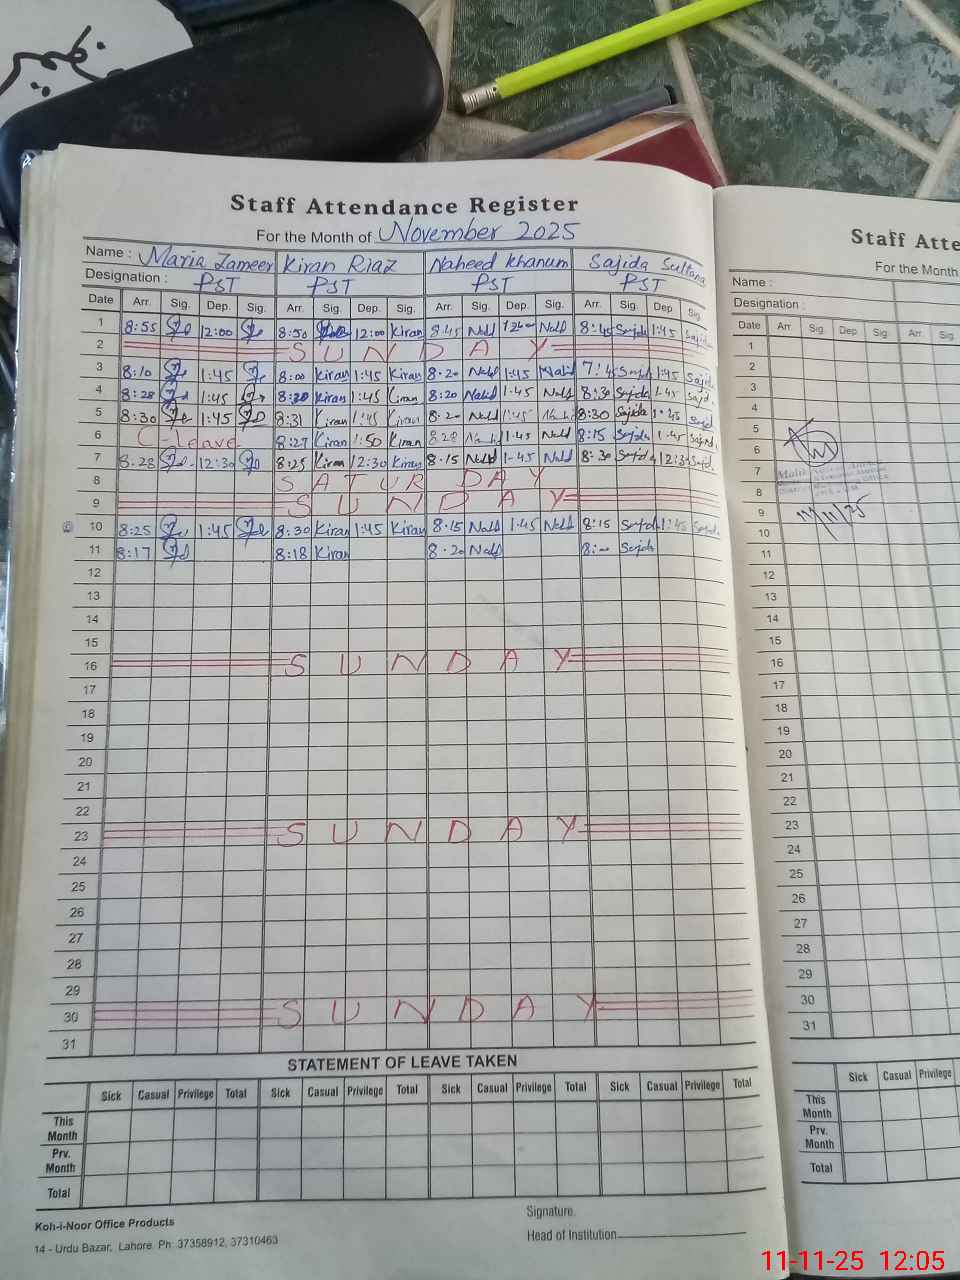 Staff Attendance Register
For the Month of November 2025
Name : Maria Zameer Kiran Riaz Naheed Khanum Sajida Sultana
Designation : PST PST PST PST
Date Arr. Sig. Dep. Sig. Arr. Sig. Dep. Sig. Arr. Sig. Dep. Sig. Arr. Sig. Dep. Sig.
1 8:55 12:00 8:50 12:00 Kiran 8.45 Nahd 1200 Nahd 8:45 Sajda 1:45 Sajida
2 SUNDAY
3 8:10 1:45 8:00 Kiran 1:45 Kiran 8.20 Nahd 1:45 Nahid 7:45 Sajd 1:45 Sajd.
4 8:28 1:45 8:30 Kiran 1:45 Kiran 8:20 Nahid 1.45 Nahd 8:30 Sajda 1.45 Sajd.
5 8:30 1:45 8:31 Kiran 1:45 Kiran 8.20 Nahd 1:45 8:30 Sajida 1.45 Sajd
6 C-leave 8:27 Kiran 1:50 Kiran 8.28 1.45 Nahd 8:15 Sajda 1.45 Sajnd.
7 8.28 12:30 8:25 Kiran 12:30 Kiran 8.15 Nahd 1-45 Nahd 8:30 Sajda 12:30 Sajd.
8 SATURDAY
9 SUNDAY
10 8:25 1:45 8:30 Kiran 1:45 Kiran 8.15 Nahd 1.45 Nahd 8:15 Sajda 1:45 Sajda.
11 8:17 8:18 Kiran 8.20 Nahd 8:00 Sajda
12
13
14
15
16 SUNDAY
17
18
19
20
21
22
23 SUNDAY
24
25
26
27
28
29
30 SUNDAY
31
STATEMENT OF LEAVE TAKEN
Sick Casual Privilege Total Sick Casual Privilege Total Sick Casual Privilege Total Sick Casual Privilege Total
This Month
Prv. Month
Total
Koh-i-Noor Office Products
14 - Urdu Bazar, Lahore. Ph: 37358912, 37310463
Signature.
Head of Institution
Staff Atte
For the Month
Name :
Designation :
Date Arr. Sig. Dep. Sig. Arr. Sig.
1
2
3
4
5
6
7
8
9
10
11
12
13
14
15
16
17
18
19
20
21
22
23
24
25
26
27
28
29
30
31
11/11/25
Sick Casual Privilege
This Month
Prv. Month
Total
11-11-25 12:05